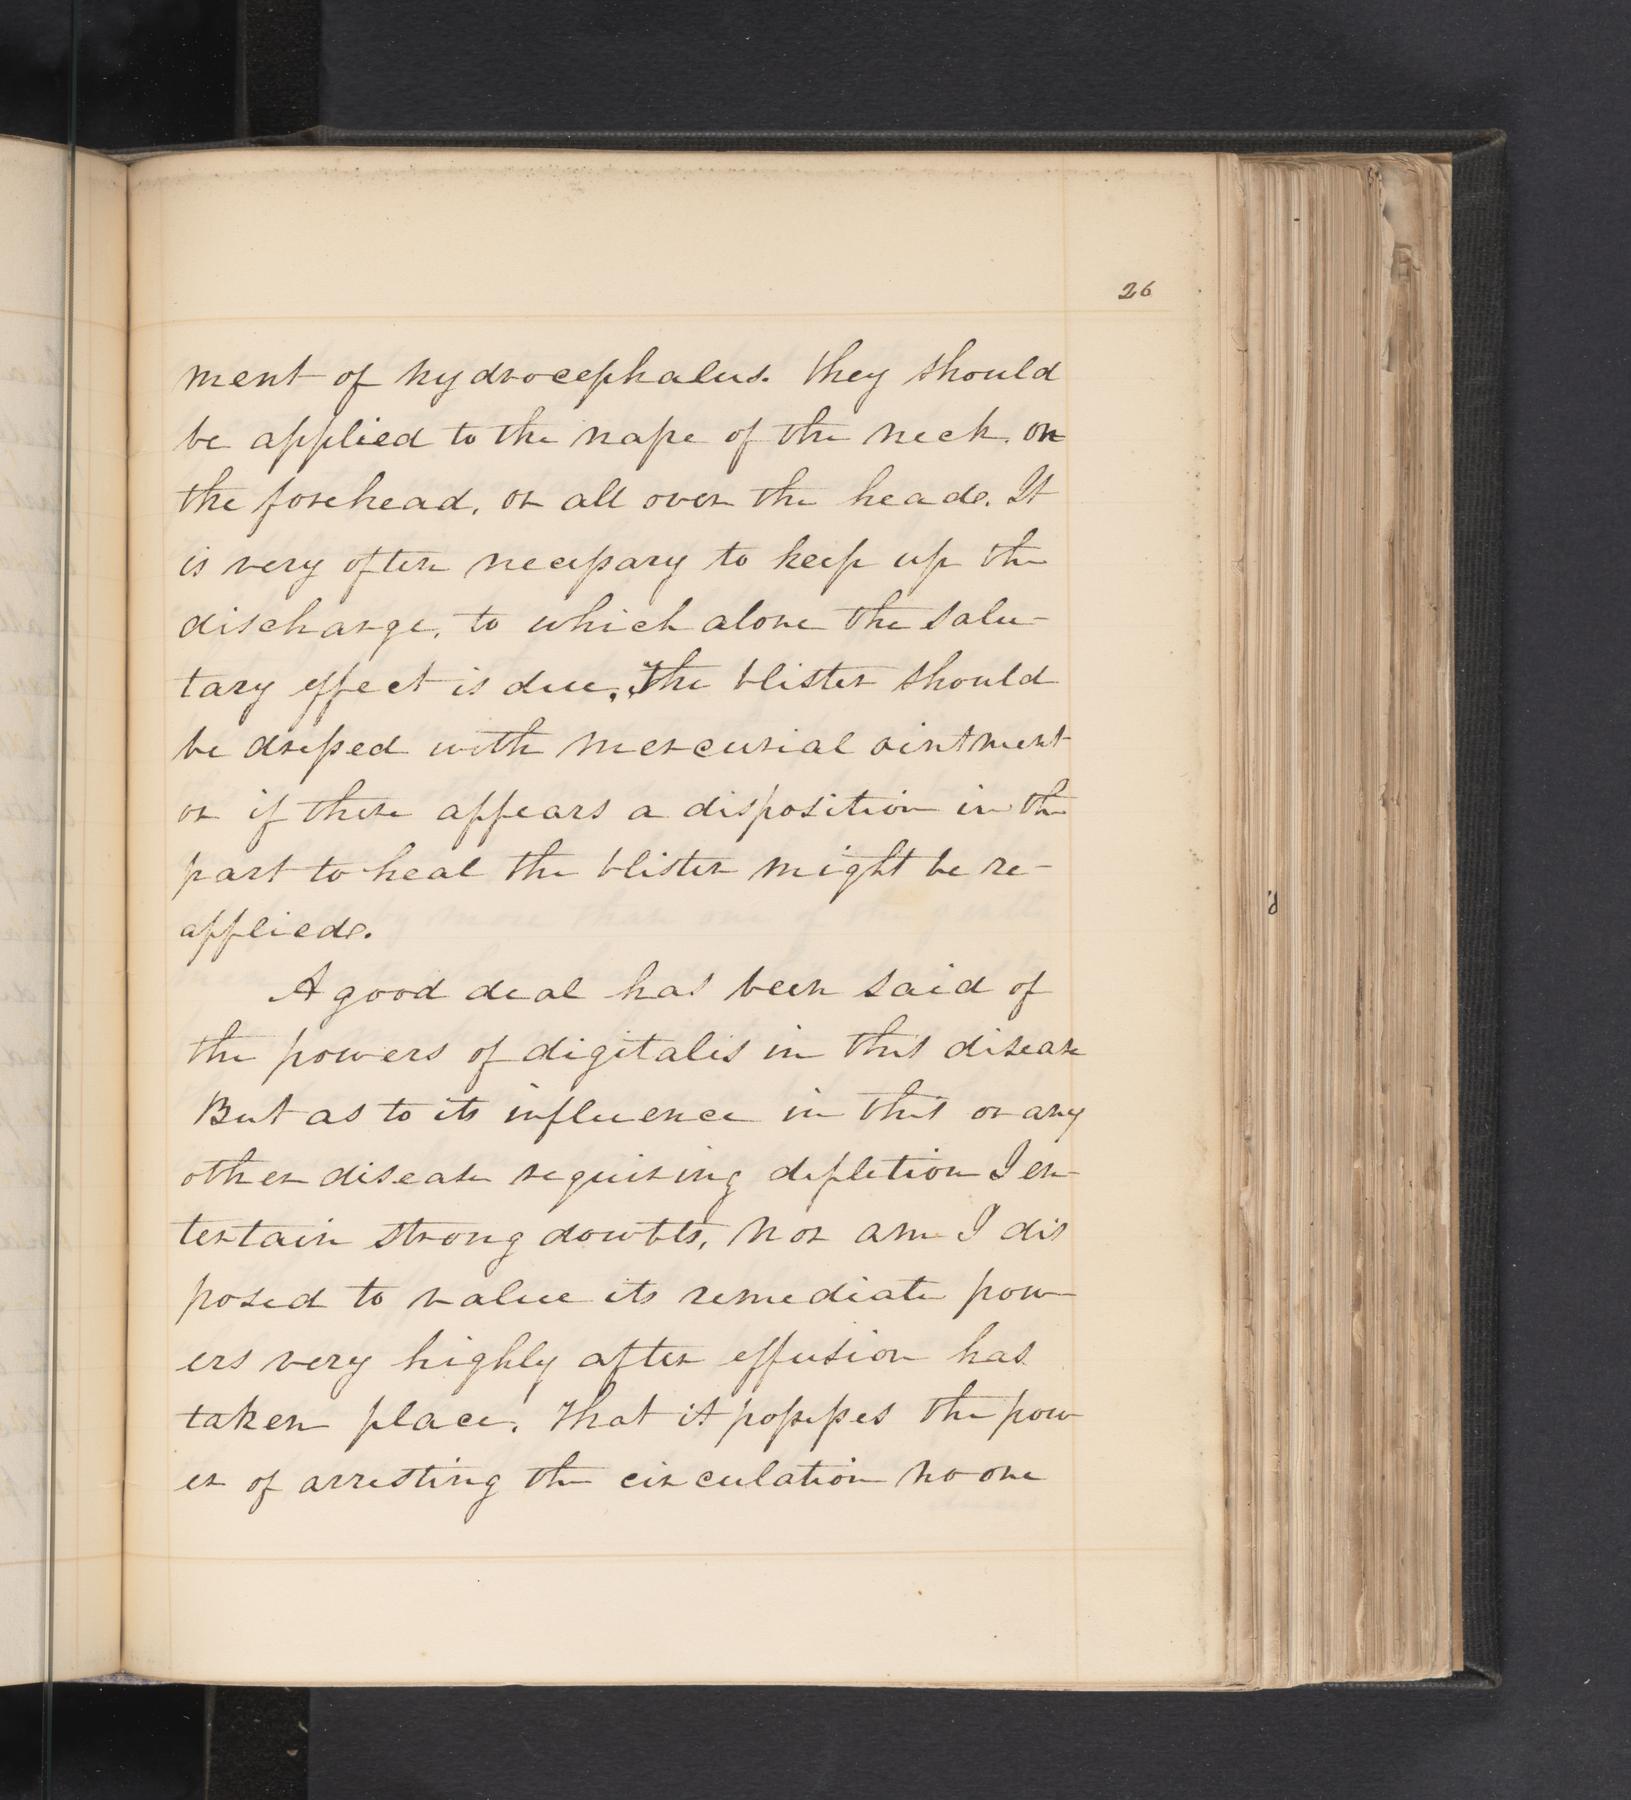 26
ment of hydrocephalus. They should
be applied to the nape of the neck, on
the forehead, or all over the head. It
is very often necessary to keep up the
discharge, to which alone the salu-
tary effect is due. The blister should
be dressed with mercurial ointment
or if there appears a disposition in the
part to heal the blister might be re-
applied.
A good deal has been said of
the powers of digitalis in this disease
But as to its influence in this or any
other disease requiring depletion I en-
tertain strong doubts, nor am I dis
posed to value its remediate pow-
ers very highly after effusion has
taken place. That it possesses the pow-
er of arresting the circulation no one